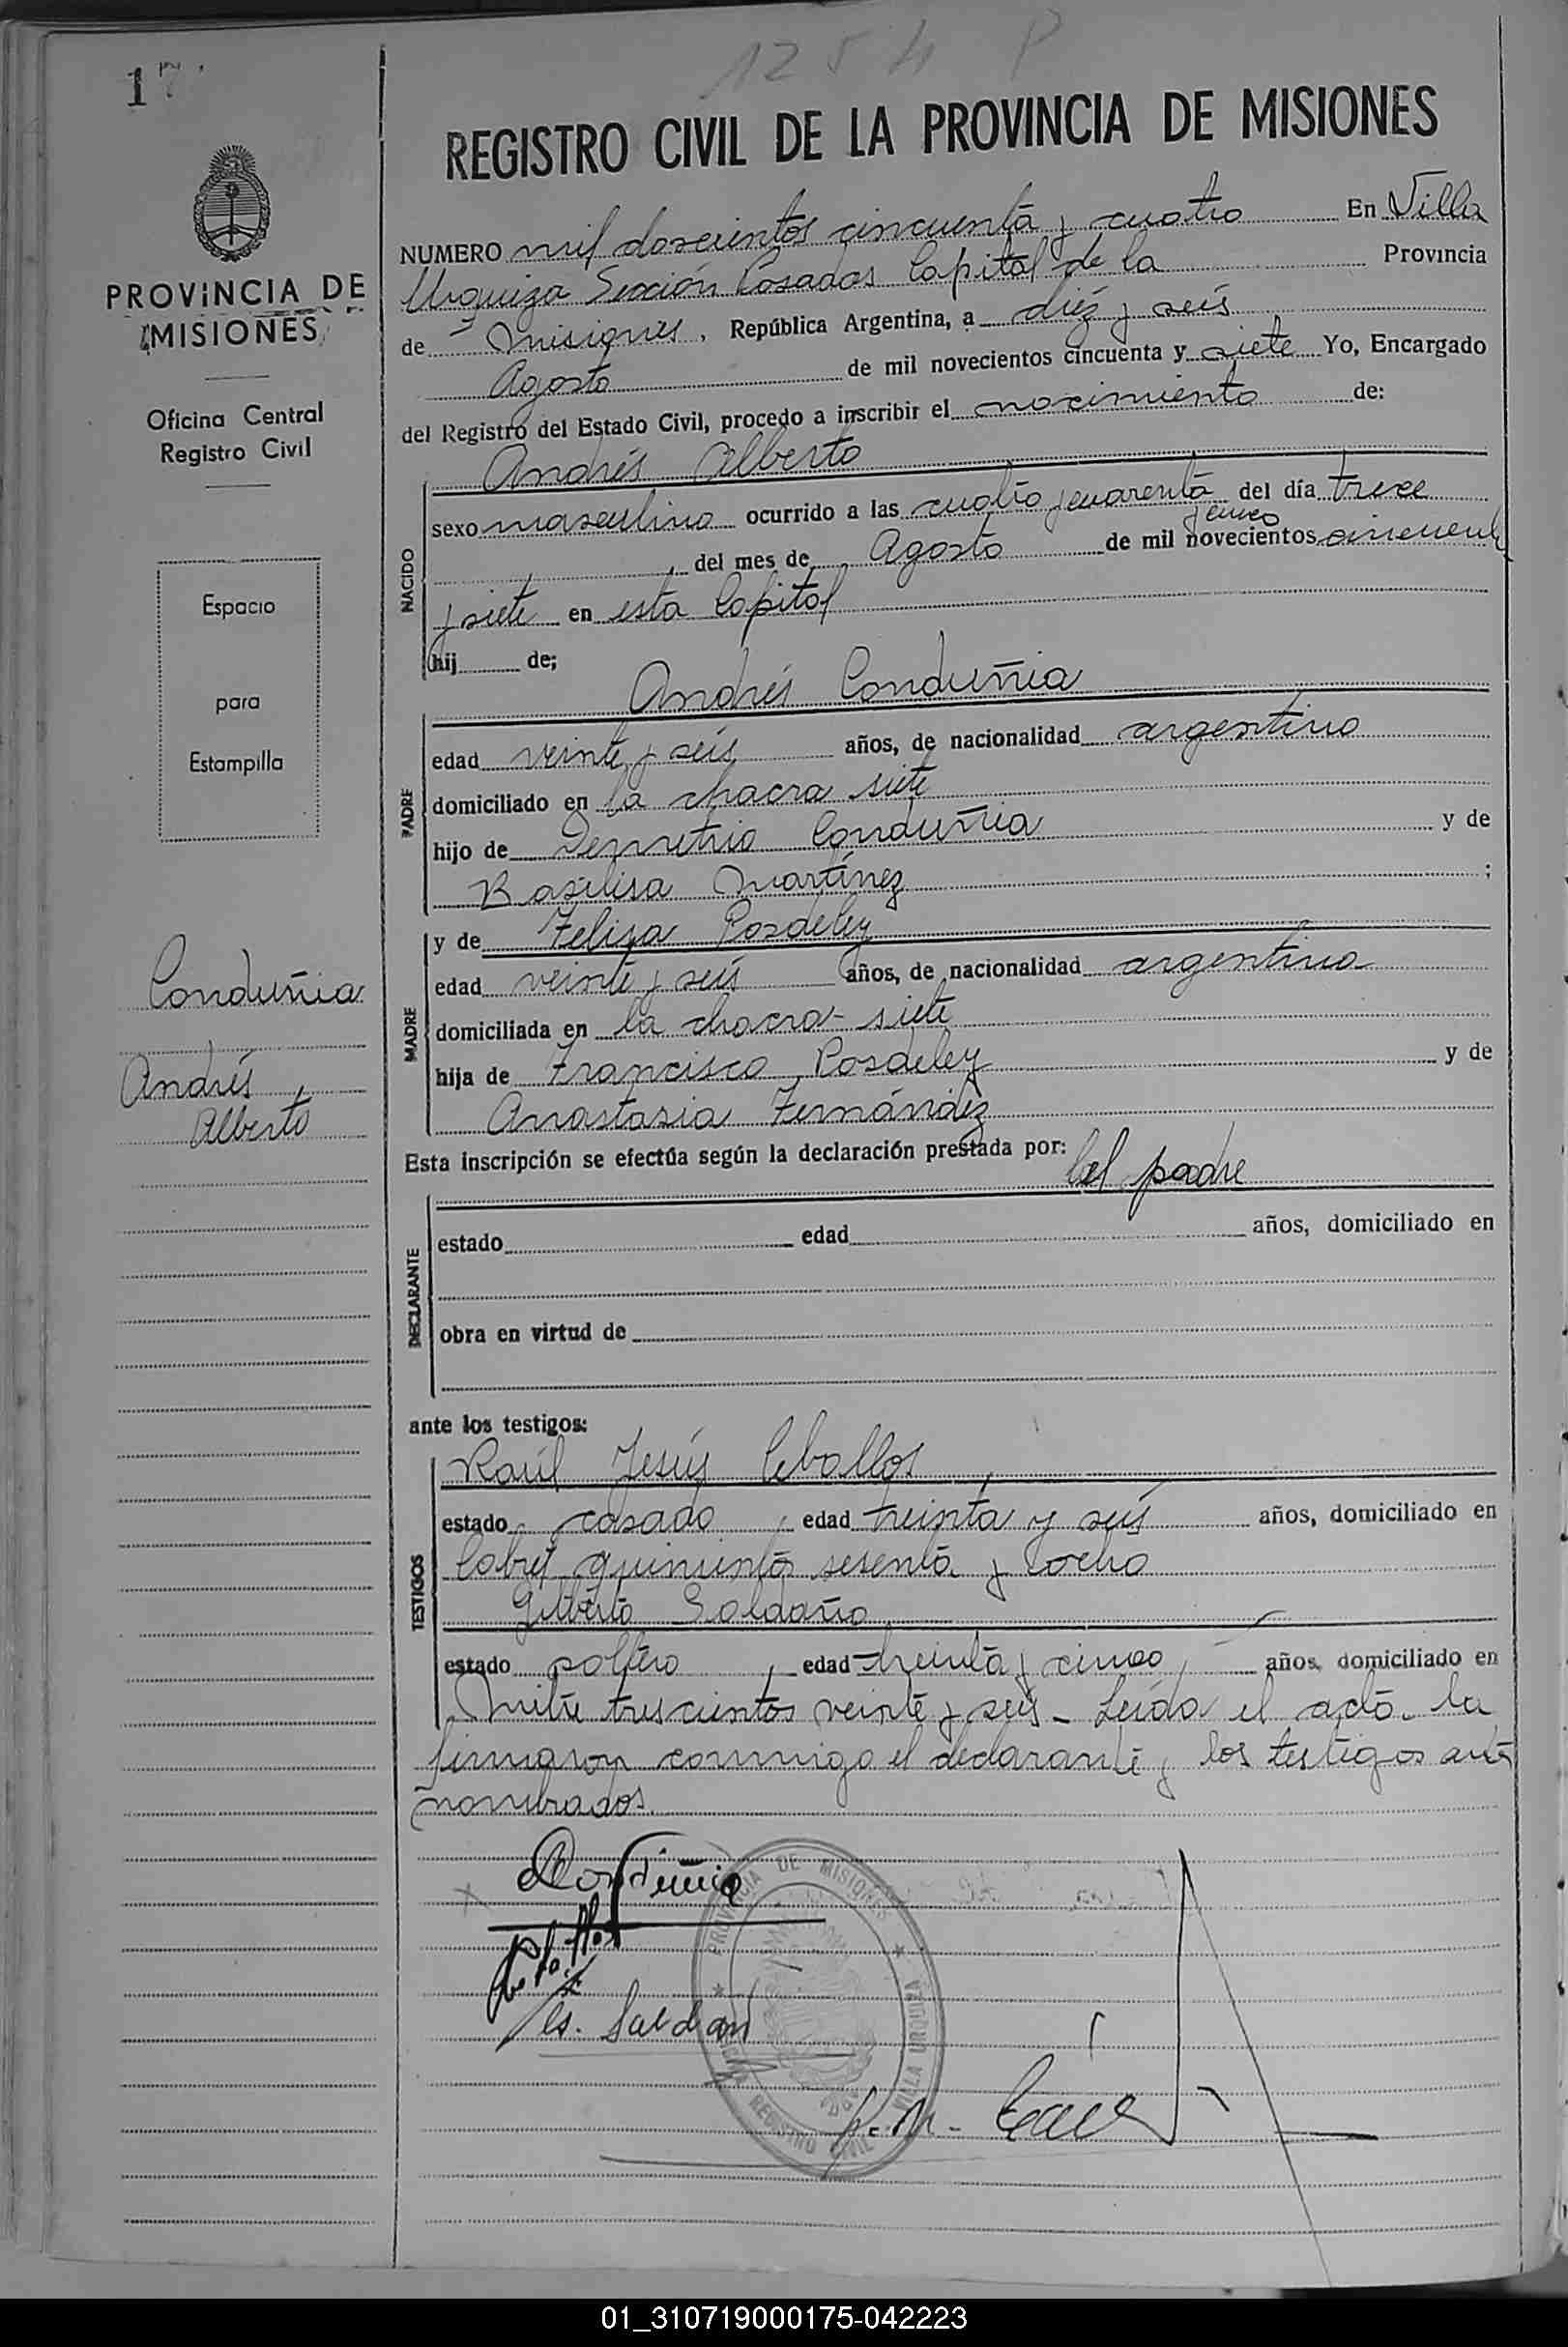 1254 P
17
REGISTRO CIVIL DE LA PROVINCIA DE MISIONES
NUMERO mil doscientos cincuenta y cuatro En Villa
Urquiza Sección Posadas Capital de la Provincia
de Misiones, República Argentina, a diéz y seis
Agosto de mil novecientos cincuenta y siete Yo, Encargado
del Registro del Estado Civil, procedo a inscribir el nacimiento de:
Andrés Alberto
NACIDO
sexo masculino ocurrido a las cuatro y cuarenta del día trece
y cinco
del mes de Agosto de mil novecientos cincuenta
y siete en esta Capital
hij de;
Andrés Conduñia
PADRE
edad veinte y seis años, de nacionalidad argentino
domiciliado en la chacra siete
hijo de Demetrio Conduñia y de
Basilisa Martínez ;
y de Felisa Posdeley
MADRE
edad veinte y seis años, de nacionalidad argentina
domiciliada en la chacra siete
hija de Francisco Posdeley y de
Anastasia Fernández
Esta inscripción se efectúa según la declaración prestada por:
el padre
DECLARANTE
estado edad años, domiciliado en
obra en virtud de
ante los testigos:
Raúl Jesús Ceballos
TESTIGOS
estado casado, edad treinta y seis años, domiciliado en
Cabret quinientos sesenta y ocho
Gilberto Saldaño
estado soltero, edad treinta y cinco, años, domiciliado en
Mitre trescientos veinte y seis - Leída el acta la
firmaron conmigo el declarante y los testigos ante
nombrados.
PROVINCIA DE MISIONES
VILLA URQUIZA
REGISTRO CIVIL
PROVINCIA DE
MISIONES
Oficina Central
Registro Civil
Espacio
para
Estampilla
Conduñia
Andrés
Alberto
01_310719000175-042223